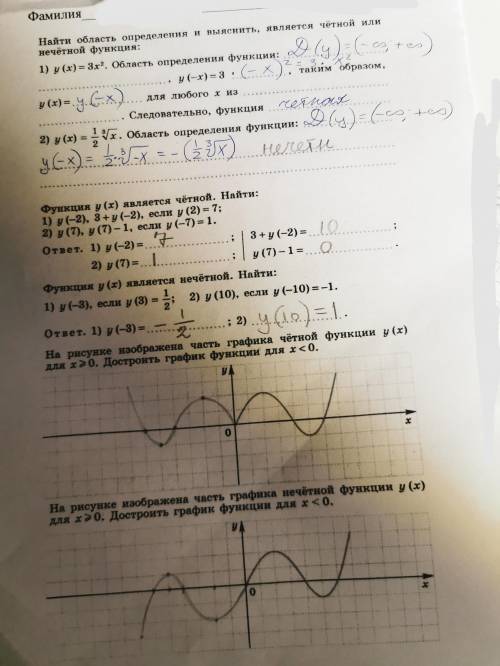 Фамилия__
Найти область определения и выяснить, является чётной или
нечётной функция:
1) y (x) = 3x². Область определения функции: D(y)=(-∞; +∞)
, y (−x) = 3 · (-x)² = 3 · x², таким образом,
y (x) = y(-x) для любого x из
. Следовательно, функция четная
2) y (x) = 1/2 ∛x. Область определения функции: D(y)=(-∞; +∞)
y(-x) = 1/2 · ∛-x = -(1/2 ∛x) нечетн
Функция y (x) является чётной. Найти:
1) y (−2), 3 + y (−2), если y (2) = 7;
2) y (7), y (7) − 1, если y (−7) = 1.
Ответ. 1) y (−2) = 7 ; 3 + y (−2) = 10 ;
2) y (7) = 1 ; y (7) − 1 = 0 .
Функция y (x) является нечётной. Найти:
1) y (−3), если y (3) = 1/2; 2) y (10), если y (−10) = −1.
Ответ. 1) y (−3) = -1/2 ; 2) y(10)=1 .
На рисунке изображена часть графика чётной функции y (x)
для x ⩾ 0. Достроить график функции для x < 0.
y
0
x
На рисунке изображена часть графика нечётной функции y (x)
для x ⩾ 0. Достроить график функции для x < 0.
y
0
x